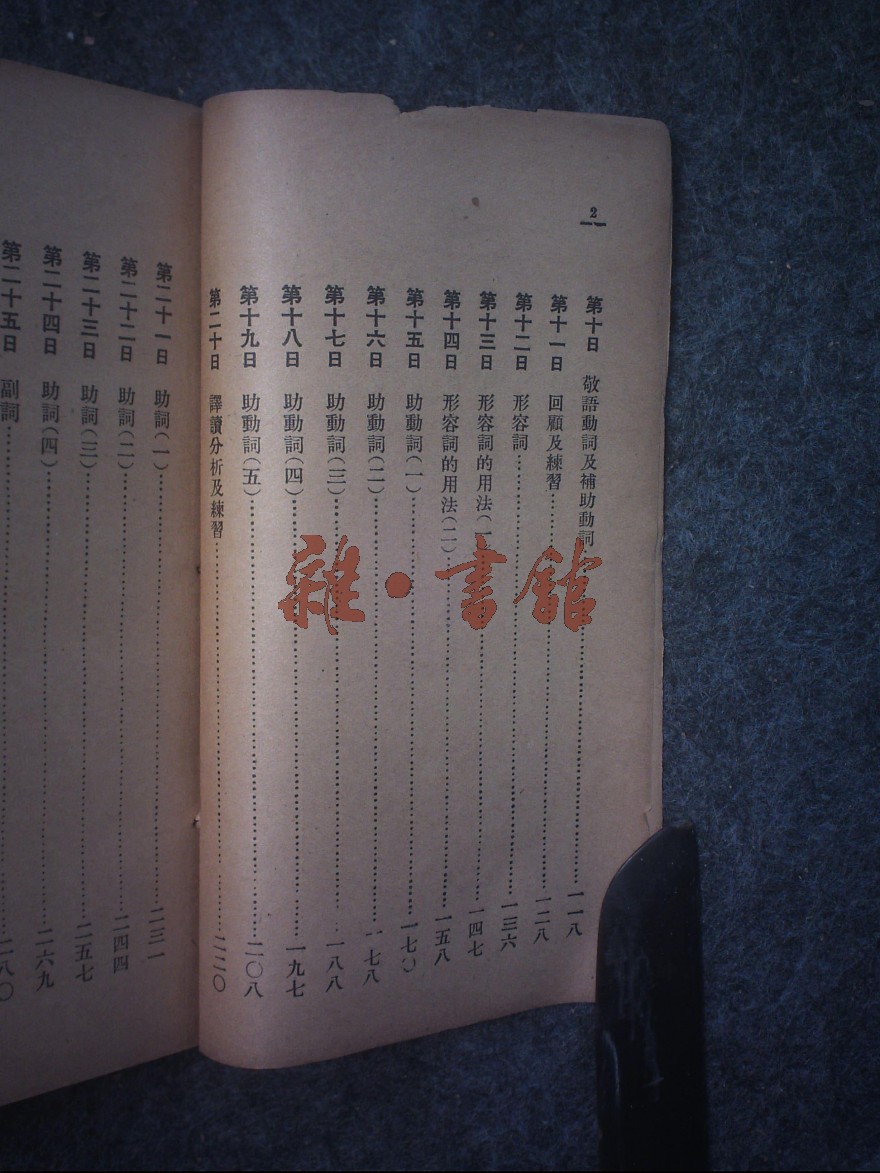 2
第十日 敬語動詞及補助動詞……一一八
第十一日 回顧及練習……一二八
第十二日 形容詞……一三六
第十三日 形容詞的用法(一……一四七
第十四日 形容詞的用法(二)……一五八
第十五日 助動詞(一)……一七〇
第十六日 助動詞(二)……一七八
第十七日 助動詞(三)……一八八
第十八日 助動詞(四)……一九七
第十九日 助動詞(五)……二〇八
第二十日 譯讀分析及練習……二二〇
第二十一日 助詞(一)……二三一
第二十二日 助詞(二)……二四四
第二十三日 助詞(三)……二五七
第二十四日 助詞(四)……二六九
第二十五日 副詞……二八〇
雜·書館